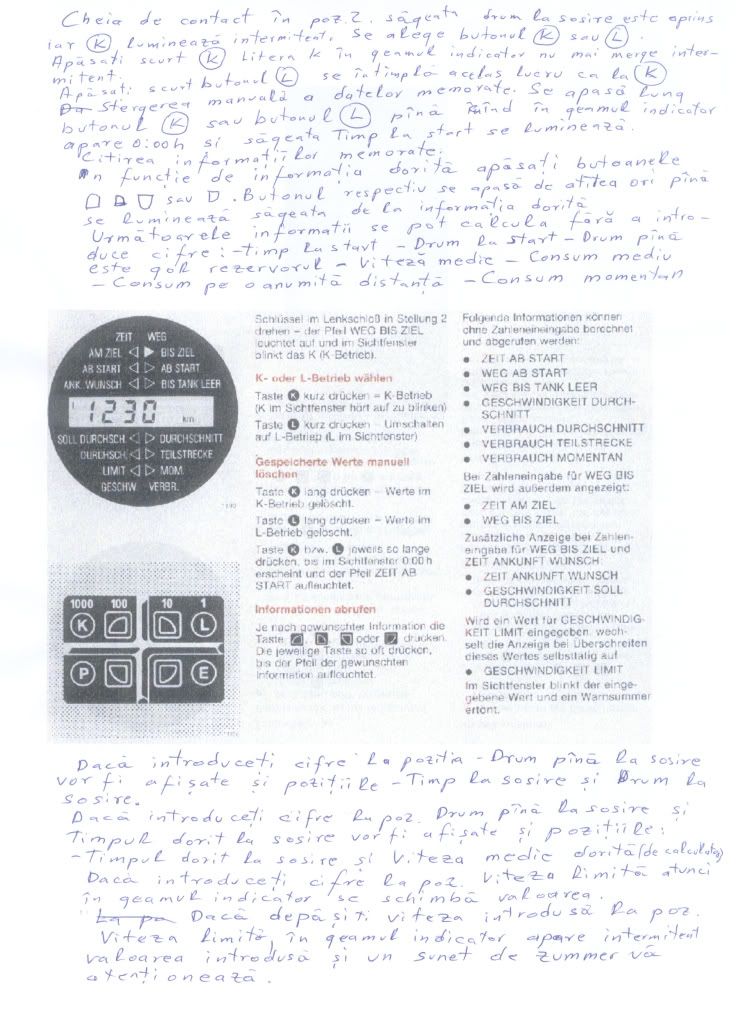 Cheia de contact în poz. 2. săgeata drum la sosire este aprins
iar K luminează intermitent. Se alege butonul K sau L.
Apăsați scurt K Litera K în geamul indicator nu mai merge inter-
mitent.
Apăsați scurt butonul L se întîmplă același lucru ca la K
Da Stergerea manuală a datelor memorate. Se apasă lung
butonul K sau butonul L pînă cînd în geamul indicator
apare 0:00h și săgeata Timp la start se luminează.
Citirea informațiilor memorate.
În funcție de informația dorită apăsați butoanele
sau . Butonul respectiv se apasă de atîtea ori pînă
se luminează săgeata de la informația dorită
Următoarele informatii se pot calcula fără a intro-
duce cifre: -timp la start - Drum la start - Drum pînă
este gol rezervorul - Viteză medie - Consum mediu
- Consum pe o anumită distanță - Consum momentan
ZEIT WEG
AM ZIEL BIS ZIEL
AB START AB START
ANK. WUNSCH BIS TANK LEER
1230 km
SOLL DURCHSCH. DURCHSCHNITT
DURCHSCH. TEILSTRECKE
LIMIT MOM.
GESCHW. VERBR.
1000 100 10 1
K L
P E
Schlüssel im Lenkschloß in Stellung 2
drehen – der Pfeil WEG BIS ZIEL
leuchtet auf und im Sichtfenster
blinkt das K (K-Betrieb).
K- oder L-Betrieb wählen
Taste K kurz drücken = K-Betrieb
(K im Sichtfenster hört auf zu blinken)
Taste L kurz drücken – Umschalten
auf L-Betrieb (L im Sichtfenster)
Gespeicherte Werte manuell
löschen
Taste K lang drücken – Werte im
K-Betrieb gelöscht.
Taste L lang drücken – Werte im
L-Betrieb gelöscht.
Taste K bzw. L jeweils so lange
drücken, bis im Sichtfenster 0:00 h
erscheint und der Pfeil ZEIT AB
START aufleuchtet.
Informationen abrufen
Je nach gewünschter Information die
Taste , , oder drücken.
Die jeweilige Taste so oft drücken,
bis der Pfeil der gewünschten
Information aufleuchtet.
Folgende Informationen können
ohne Zahleneingabe berechnet
und abgerufen werden:
● ZEIT AB START
● WEG AB START
● WEG BIS TANK LEER
● GESCHWINDIGKEIT DURCH-
SCHNITT
● VERBRAUCH DURCHSCHNITT
● VERBRAUCH TEILSTRECKE
● VERBRAUCH MOMENTAN
Bei Zahleneingabe für WEG BIS
ZIEL wird außerdem angezeigt:
● ZEIT AM ZIEL
● WEG BIS ZIEL
Zusätzliche Anzeige bei Zahlen-
eingabe für WEG BIS ZIEL und
ZEIT ANKUNFT WUNSCH:
● ZEIT ANKUNFT WUNSCH
● GESCHWINDIGKEIT SOLL
DURCHSCHNITT
Wird ein Wert für GESCHWINDIG-
KEIT LIMIT eingegeben, wech-
selt die Anzeige bei Überschreiten
dieses Wertes selbsttätig auf
● GESCHWINDIGKEIT LIMIT
Im Sichtfenster blinkt der einge-
gebene Wert und ein Warnsummer
ertönt.
Dacă introduceți cifre la poziția - Drum pînă la sosire
vor fi afișate și pozițiile - Timp la sosire și Drum la
sosire.
Dacă introduceți cifre la poz. Drum pînă la sosire și
Timpul dorit la sosire vor fi afișate și pozițiile:
-Timpul dorit la sosire și Viteza medie dorită (de calculator)
Dacă introduceți cifre la poz. Viteza limită atunci
în geamul indicator se schimbă valoarea.
La po Dacă depășiți viteza introdusă la poz.
Viteza limită, în geamul indicator apare intermitent
valoarea introdusă și un sunet de zummer vă
atenționează.